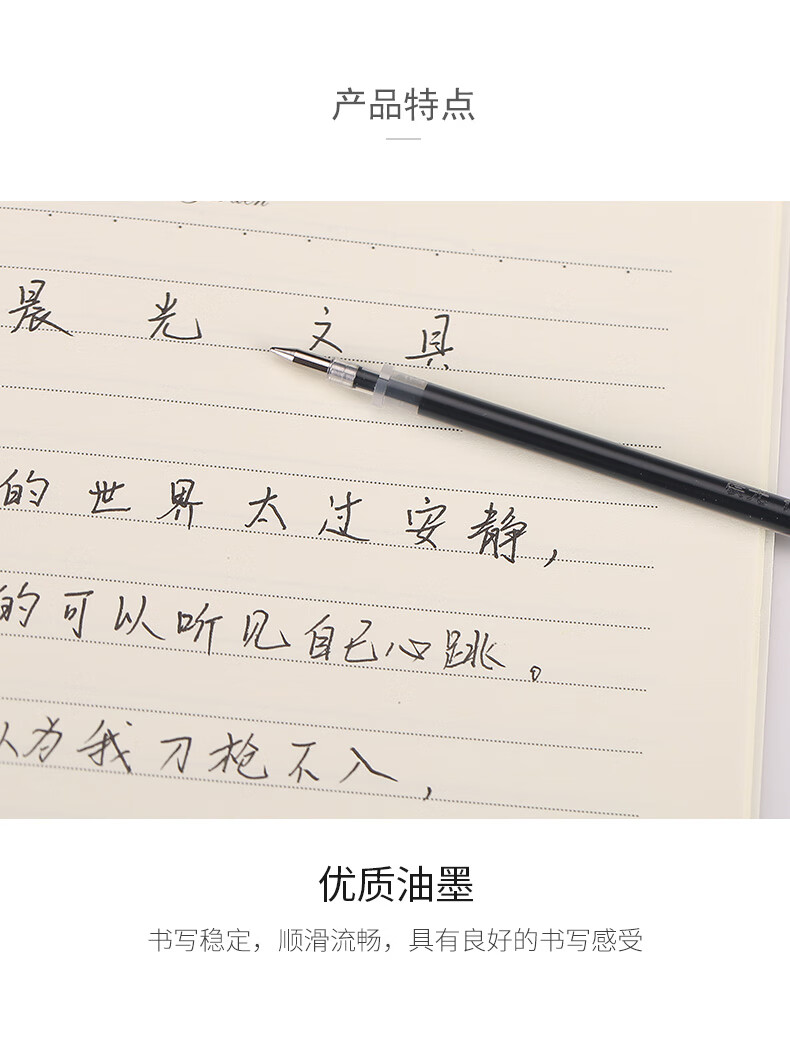 产品特点
晨光文具
的世界太过安静，
的可以听见自己心跳。
以为我刀枪不入，
优质油墨
书写稳定，顺滑流畅，具有良好的书写感受